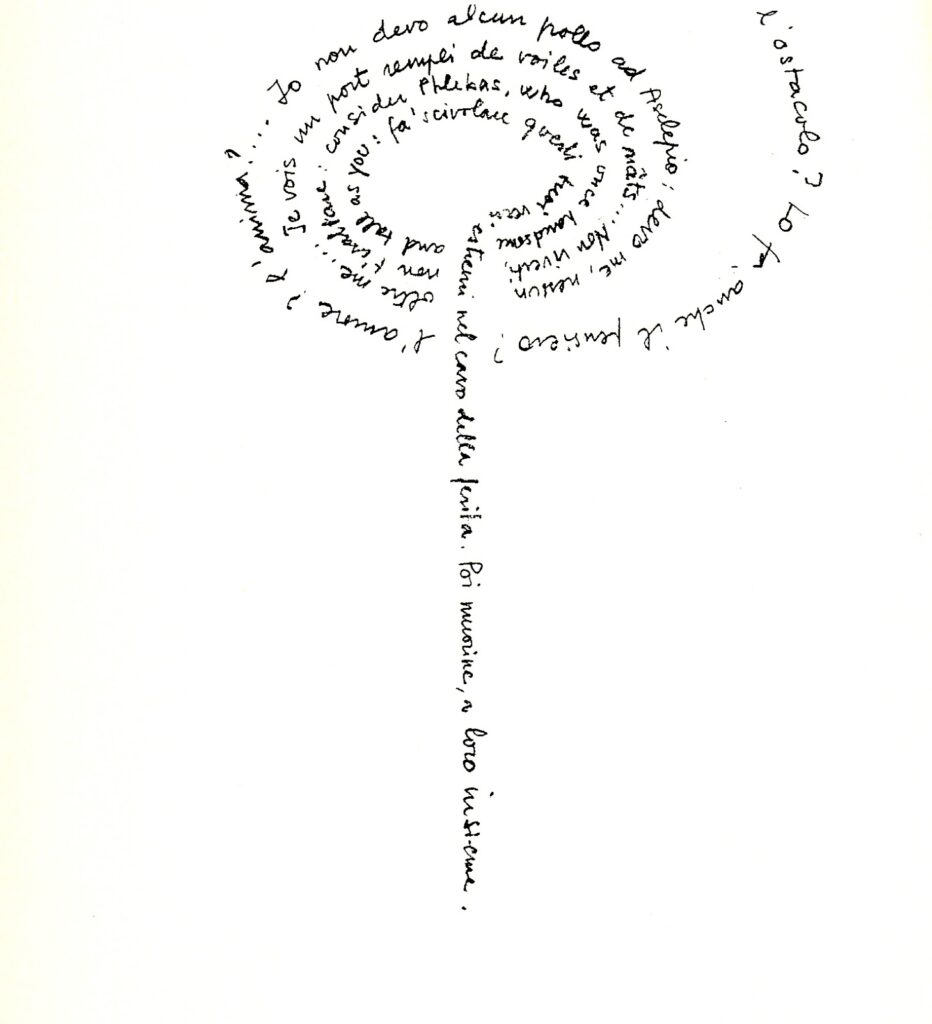 l'ostacolo? Lo fa, anche il pensiero?
L'amore? L'anima?....
Io non devo alcun pollo ad Asclepio; devo me, nessun
oltre me...
Je vois un port rempli de voiles et de mâts... Non viverti,
non t'esaltare: consider Phlebas, who was once handsome
and tall as you: fa' scivolare questi tuoi versi
estremi nel cavo della ferita. Poi muorine, a loro insieme.